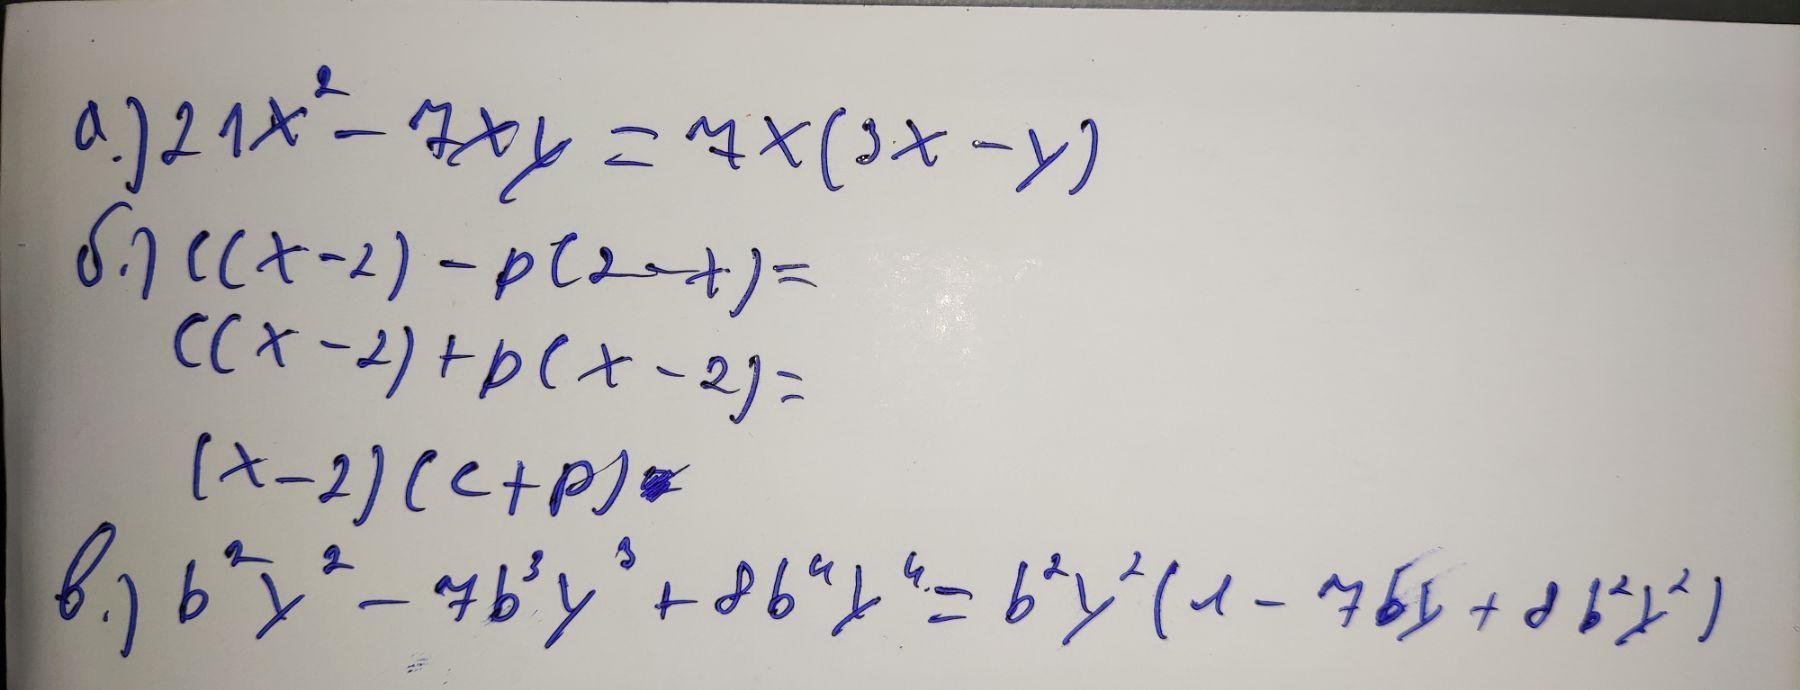 а.) 21x² - 7xy = 7x(3x - y)
б.) c(x-2) - p(2-x) =
c(x-2) + p(x-2) =
(x-2)(c+p)
в.) b²y² - 7b³y³ + 8b⁴y⁴ = b²y²(1 - 7by + 8b²y²)